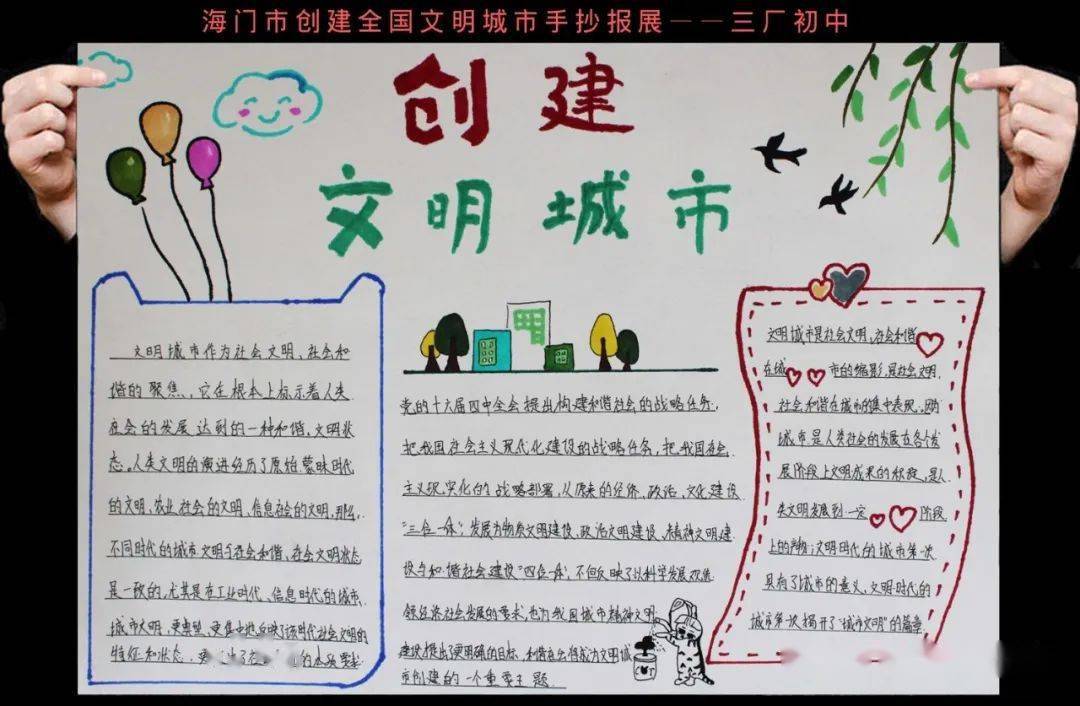 海门市创建全国文明城市手抄报展——三厂初中
创建
文明城市
文明城市作为社会文明、社会和
谐的聚焦,它在根本上标示着人类
社会的发展达到的一种和谐,文明状
态。人类文明的演进经历了原始蒙昧时代
的文明,农业社会的文明、信息社会的文明,那么,
不同时代的城市文明与社会和谐、社会文明状态
是一致的,尤其是在工业时代、信息时代的城市,
城市文明,更集中地反映了该时代社会文明的
特征和状态,的本质要求
党的十六届四中全会提出构建和谐社会的战略任务,
把我国社会主义现代化建设的战略任务,把我国社会
主义现实化的战略部署,从原来的经济,政治,文化建设
"三位一体",发展为物质文明建设,政治文明建设,精神文明建
设与和谐社会建设"四位一体",不但反映了以科学发展观统
领经济社会发展的要求,也为我国城市精神文明
建设提出了更明确的目标,和谐社会得成为文明城
市创建的一个重要主题
文明城市是社会文明,社会和谐
在城市的缩影,是社会文明,
社会和谐在城市的集中表现,
城市是人类社会的发展在各个发
展阶段上文明成果的积淀,是人
类文明发展到一定阶段
上的产物;文明时代的城市第一次
具有了城市的意义,文明时代的
城市第一次揭开了"城市文明"的篇章